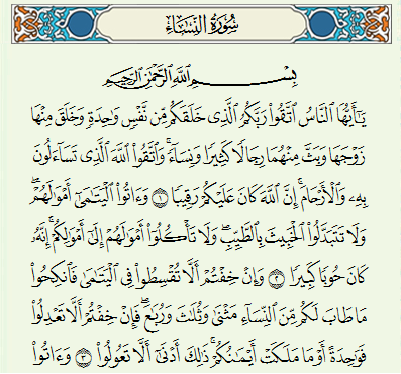 سُورَةُ النِّسَاءِ
بِسْمِ ٱللَّهِ ٱلرَّحْمَٰنِ ٱلرَّحِيمِ
يَٰٓأَيُّهَا ٱلنَّاسُ ٱتَّقُوا۟ رَبَّكُمُ ٱلَّذِى خَلَقَكُم مِّن نَّفْسٍ وَٰحِدَةٍ وَخَلَقَ مِنْهَا
زَوْجَهَا وَبَثَّ مِنْهُمَا رِجَالًا كَثِيرًا وَنِسَآءً ۚ وَٱتَّقُوا۟ ٱللَّهَ ٱلَّذِى تَسَآءَلُونَ
بِهِۦ وَٱلْأَرْحَامَ ۚ إِنَّ ٱللَّهَ كَانَ عَلَيْكُمْ رَقِيبًا ۝١ وَءَاتُوا۟ ٱلْيَتَٰمَىٰٓ أَمْوَٰلَهُمْ ۖ
وَلَا تَتَبَدَّلُوا۟ ٱلْخَبِيثَ بِٱلطَّيِّبِ ۖ وَلَا تَأْكُلُوٓا۟ أَمْوَٰلَهُمْ إِلَىٰٓ أَمْوَٰلِكُمْ ۚ إِنَّهُۥ
كَانَ حُوبًا كَبِيرًا ۝٢ وَإِنْ خِفْتُمْ أَلَّا تُقْسِطُوا۟ فِى ٱلْيَتَٰمَىٰ فَٱنكِحُوا۟
مَا طَابَ لَكُم مِّنَ ٱلنِّسَآءِ مَثْنَىٰ وَثُلَٰثَ وَرُبَٰعَ ۖ فَإِنْ خِفْتُمْ أَلَّا تَعْدِلُوا۟
فَوَٰحِدَةً أَوْ مَا مَلَكَتْ أَيْمَٰنُكُمْ ۚ ذَٰلِكَ أَدْنَىٰٓ أَلَّا تَعُولُوا۟ ۝٣ وَءَاتُوا۟